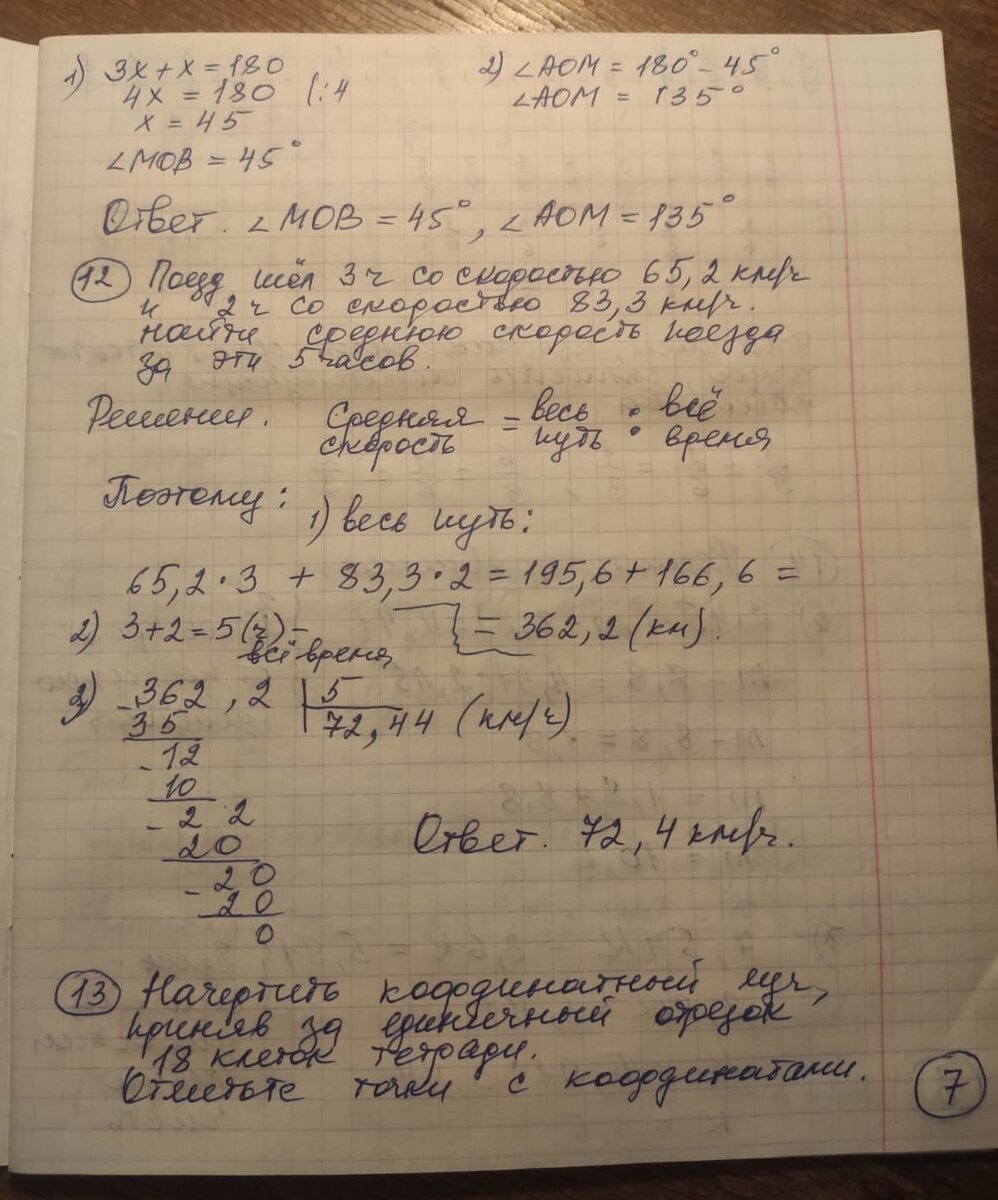 1) 3x + x = 180
4x = 180 |:4
x = 45
∠MOB = 45°
2) ∠AOM = 180° - 45°
∠AOM = 135°
Ответ. ∠MOB = 45°, ∠AOM = 135°
12 Поезд шёл 3 ч со скоростью 65,2 км/ч
и 2 ч со скоростью 83,3 км/ч.
найти среднюю скорость поезда
за эти 5 часов.
Решении. Средняя скорость = весь путь : всё время
Поэтому:
1) весь путь:
65,2 · 3 + 83,3 · 2 = 195,6 + 166,6 =
= 362,2 (км).
2) 3 + 2 = 5 (ч) -
всё время
3) 362,2 | 5
- 35 72,44 (км/ч)
- 12
10
- 2 2
20
- 20
20
0
Ответ. 72,4 км/ч.
13 Начертить координатный луч,
приняв за единичный отрезок
18 клеток тетради.
Отметьте точки с координатами.
7